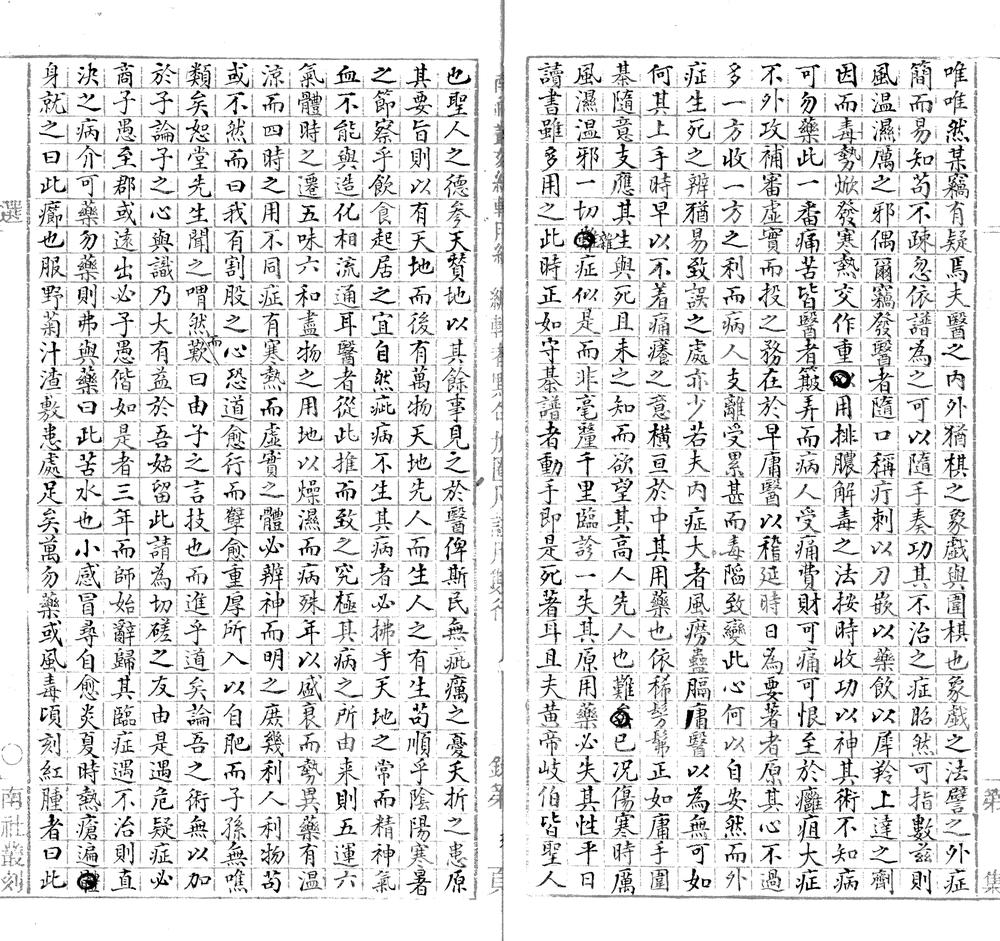 唯唯然某竊有疑焉夫醫之內外猶棋之象戲與圍棋也象戲之法譬之外症
簡而易知苟不疎忽依譜為之可以隨手奏功其不治之症昭然可指數茲則
風温濕厲之邪偶爾竊發醫者隨口稱疔刺以刀嵌以藥飲以犀羚上達之劑
因而毒勢焮發寒熱交作重用排膿解毒之法按時收功以神其術不知病
可勿藥此一番痛苦皆醫者簸弄而病人受痛費財可痛可恨至於癰疽大症
不外攻補審虛實而投之務在於早庸醫以稽延時日為要著者原其心不過
多一方收一方之利而病人支離受累甚而毒陷致變此心何以自安然而外
症生死之辨猶易致誤之處亦少若夫內症大者風癆蠱膈庸醫以為無可如
何其上手時早以不着痛癢之意橫亘於中其用藥也依稀髣髴正如庸手圍
棊隨意支應其生與死且未之知而欲望其高人先人也難已況傷寒時厲
風濕温邪一切雜症似是而非毫釐千里臨診一失其原用藥必失其性平日
讀書雖多用之此時正如守棊譜者動手即是死著耳且夫黄帝岐伯皆聖人
也聖人之德參天贊地以其餘事見之於醫俾斯民無疵癘之憂夭折之患原
其要旨則以有天地而後有萬物天地先人而生人之有生苟順乎陰陽寒暑
之節察乎飲食起居之宜自然疵病不生其病者必拂乎天地之常而精神氣
血不能與造化相流通耳醫者從此推而致之究極其病之所由来則五運六
氣體時之遷五味六和盡物之用地以燥濕而病殊年以盛衰而勢異藥有温
涼而四時之用不同症有寒熱而虛實之體必辨神而明之庶幾利人利物苟
或不然而曰我有割股之心恐道愈行而孽愈重厚所入以自肥而子孫無噍
類矣恕堂先生聞之喟然而歎曰由子之言技也而進乎道矣論吾之術無以加
於子論子之心與識乃大有益於吾姑留此請為切磋之友由是遇危疑症必
商子子愚至郡或遠出必子愚偕如是者三年而師始辭歸其臨症遇不治則直
決之病介可藥勿藥則弗與藥曰此苦水也小感冒尋自愈炎夏時熱瘡遍
身就之曰此癤也服野菊汁渣敷患處足矣萬勿藥或風毒頃刻紅腫者曰此
選
南社叢刻
第
集